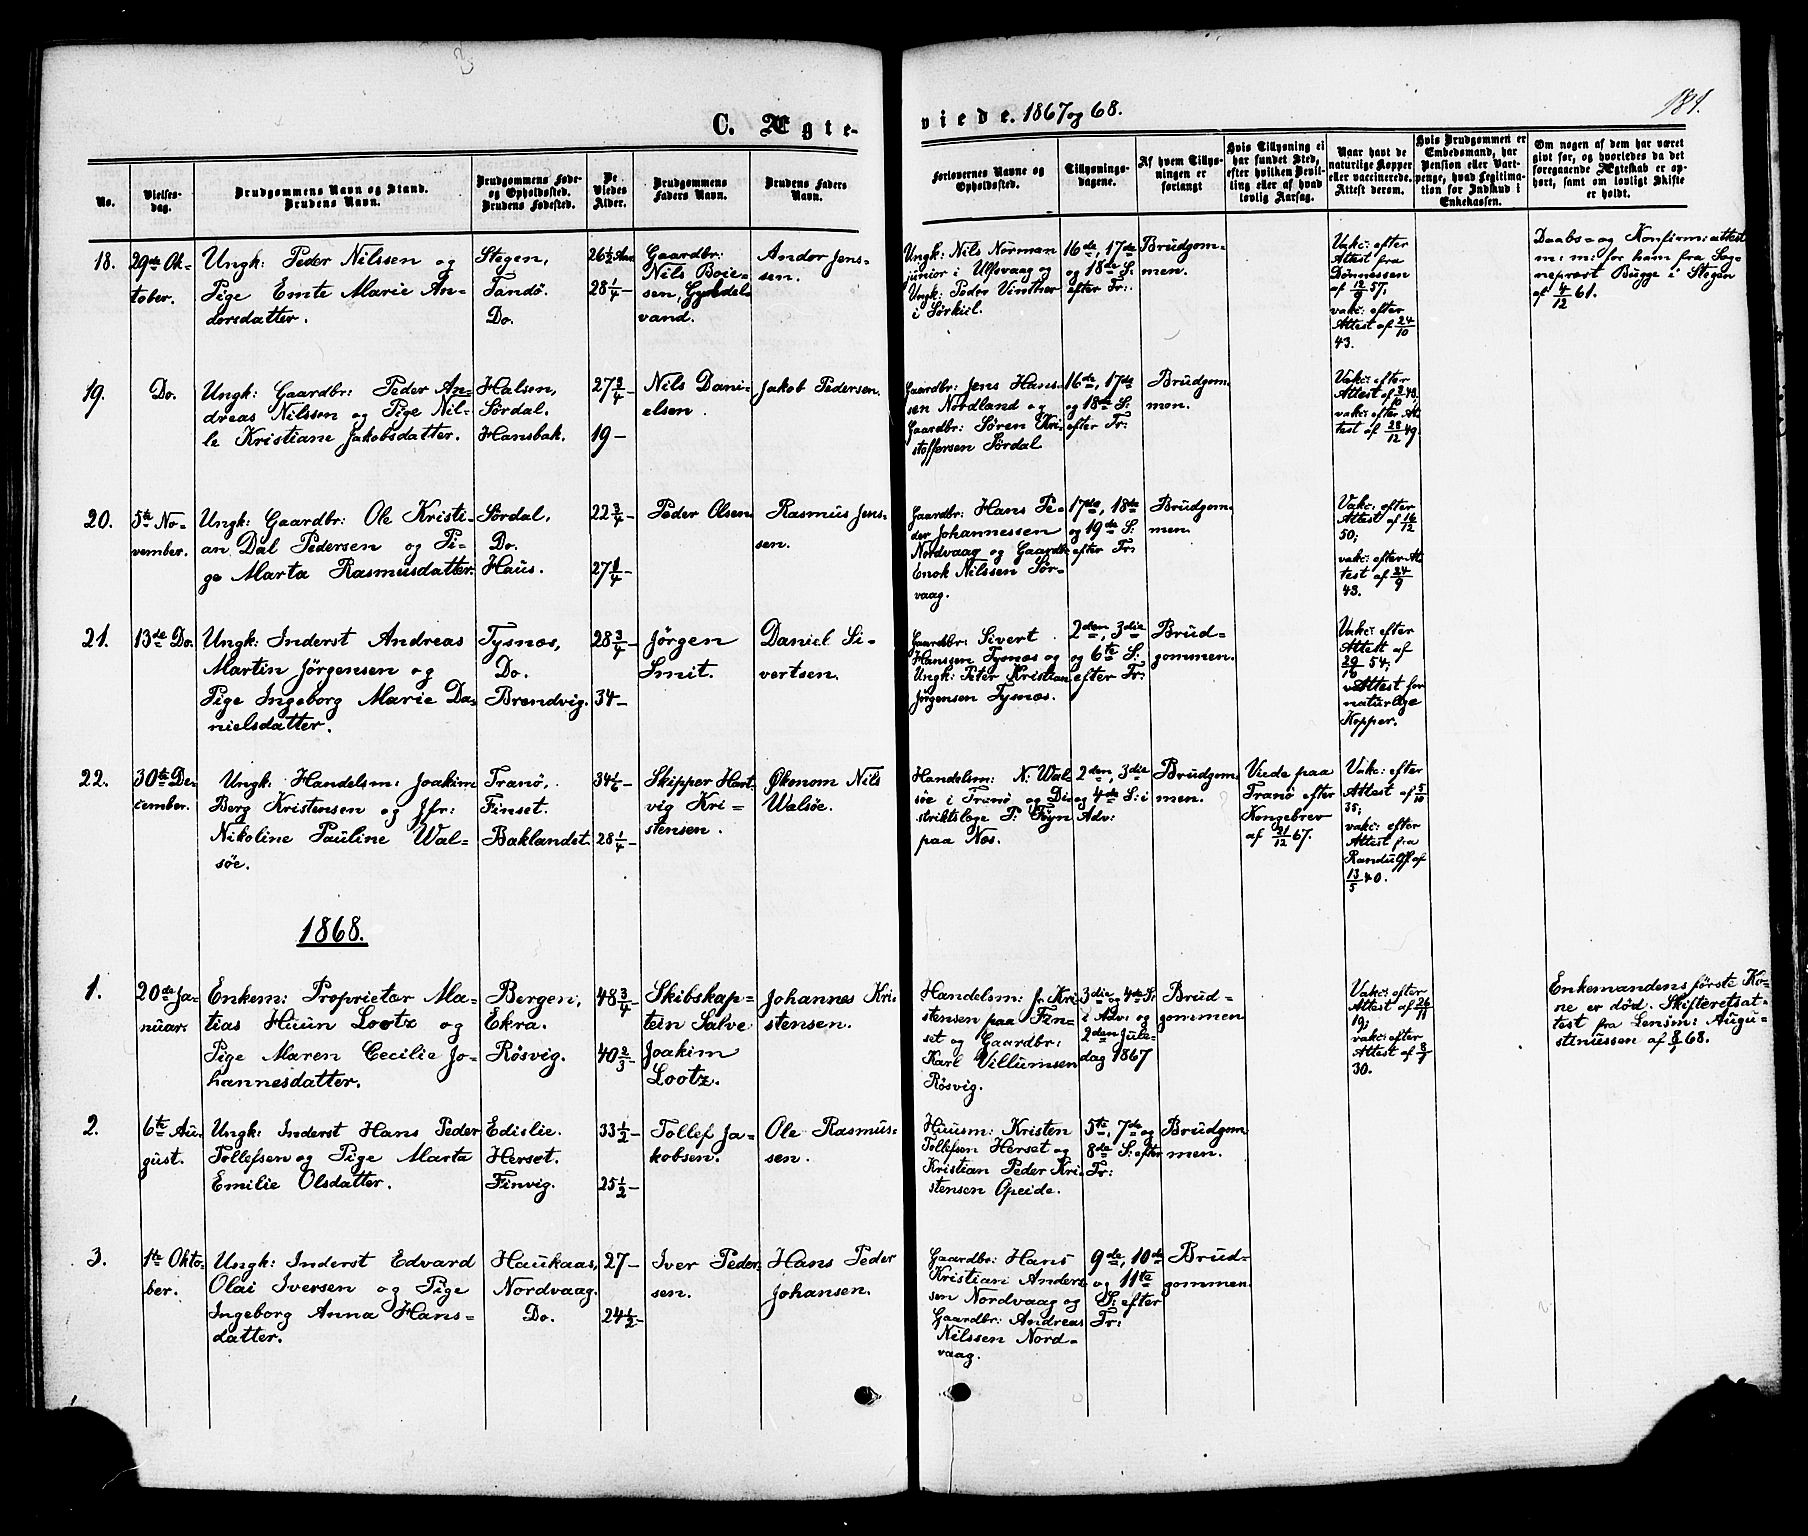 C. Ægte-
viede. 1867 og 68.
181.
No.
Vielses-
dag.
Brudgommens Navn og Stand.
Brudens Navn.
Brudgommens Føde-
og Opholdssted.
Brudens Fødested.
De
Viedes
Alder.
Brudgommens
Faders Navn.
Brudens Faders
Navn.
Forlovernes Navne og
Opholdssted.
Tillysnings-
dagene.
Af hvem Tillys-
ningen er
forlangt
Hvis Tillysning ei
har fundet Sted,
efter hvilken Bevil-
ling eller af hvad
lovlig Aarsag.
Naar havt de
naturlige Kopper
eller vaccinerede.
Attest derom.
Hvis Brudgommen er
Embedsmand, har
Pension eller Vart-
penge, hvad Legitima-
tion for Indskud i
Enkekassen.
Om nogen af dem har været
gift før, og hvorledes da det
foregaaende Ægteskab er op-
hørt, samt om lovligt Skifte
er holdt.
18.
29de Ok-
tober.
Ungk: Peder Nilssen og
Pige Emte Marie An-
dersdatter.
Stegen,
Tandö.
Do.
26½ Aar
28¼ -
Gaardbr:
Nils Boie-
sen, Gyldel-
vand.
Andor Jens-
sen.
Ungk: Nils Norman
junior i Ulfsvaag og
Ungk: Peder Vinther
i Sörkiil.
16de, 17de
og 18de S:
efter Tr:
Brudgom-
men.
Vakc: efter
Attest fra
Dønnessen
af 12/9 57.
vakc: efter
Attest af 24/10
43.
Daabs- og Konfirm: attest
m: m: for ham fra Sog-
nepræst Bugge i Stegen
af 4/12 61.
19.
Do.
Ungk: Gaardbr: Peder An-
dreas Nilssen og Pige Nil-
le Kristiane Jakobsdatter.
Halsen,
Sördal.
Hansbak.
27¾ -
19 -
Nils Dani-
elsen.
Jakob Pedersen.
Gaardbr: Jens Hans-
sen Nordland og
Gaardbr: Søren Kri-
stoffersen Sördal
16de, 17de
og 18de S:
efter Tr:
Brudgom-
men.
Vakc: efter
Attest af 2/10 48.
vakc: efter At-
test af 28/12 49.
20.
5te No-
vember.
Ungk: Gaardbr: Ole Kristi-
an Dal Pedersen og Pi-
ge Marta Rasmusdatter.
Sördal,
Do.
Haus.
22¾ -
27¼ -
Peder Olsen
Rasmus Jens-
sen.
Gaardbr: Hans Pe-
der Johannessen
Nordvaag og Gaardb:
Enok Nilssen Sør-
vaag.
17de, 18de
og 19de S:
efter Tr:
Brudgom-
men.
Vakc: efter
Attest af 16/12
50;
vakc: efter At-
test af 24/9
43.
21.
13de Do.
Ungk: Inderst Andreas
Martin Jörgensen og
Pige Ingeborg Marie Da-
nielsdatter.
Tysnæs,
Do.
Brendvig.
28¾ -
34 -
Jörgen
Smit.
Daniel Si-
vertsen.
Gaardbr: Sivert
Hanssen Tysnæs og
Ungk: Peter Kristian
Jörgensen Tysnæs.
2den, 3die
og 6te S:
efter Tr:
Brud-
gommen.
Vakc: efter
Attest af
29/10 54;
Attest for
naturlige
Kopper.
22.
30te De-
cember.
Ungk: Handelsm: Joakim
Berg Kristensen og Jfr:
Nikoline Pauline Wal-
söe.
Tranö,
Finset.
Baklandet.
34 1/6 -
28¼ -
Skipper Hart-
vig Kri-
stensen.
Økonom Nils
Walsöe.
Handelsm: N. Wal-
söe i Tranö og Di-
striktslæge P: Fryn
paa Næs.
2den, 3die
og 4de S: i
Adv:
Brudgom-
men.
Viede paa
Tranö efter
Kongebrev
af 21/12 67.
Vakc: efter
Attest af 5/10
35;
vakc: efter
Attest fra
Randulff af
13/5 40.
1868.
1.
20de Ja-
nuar.
Enkem: Proprietær Ma-
tias Huun Lootz og
Pige Maren Cecilie Jo-
hannesdatter.
Bergen,
Ekra.
Rösvig.
48¾ -
40⅔ -
Skibskap-
tein Salve
Joakim
Lootz.
Johannes Kri-
stensen.
Handelsm: Jr. Kri-
stensen paa Fin-
set og Gaardbr:
Karl Villumsen
Rösvig.
3die og 4de S:
i Adv: og
2den Jule-
dag 1867
Brud-
gommen
Vakc: efter
Attest af 26/11
19;
vakc: efter
Attest af 8/9
30.
Enkemandens første Ko-
ne er död. Skifteretsat-
test fra Lensm: Augu-
stinussen af 8/1 68.
2.
6te Au-
gust.
Ungk: Inderst Hans Peder
Tollefsen og Pige Marta
Emilie Olsdatter.
Edislie.
Herset.
Finvig.
33½ -
25½ -
Tollef Ja-
kobsen.
Ole Rasmus-
sen.
Huusm: Kristen
Tollefsen Herset og
Kristian Peder Kri-
stensen Opeide.
5te, 7de og
8de S: efter
Tr:
Brudgom-
men.
3.
1te Okto-
ber.
Ungk: Inderst Edvard
Olai Iversen og Pige
Ingeborg Anna Hans-
datter.
Haukaas,
Nordvaag.
Do.
27 -
24½ -
Iver Peder-
sen.
Hans Peder
Johansen.
Gaardbr: Hans
Kristian Anders-
sen Nordvaag og
Gaardbr: Andreas
Nilssen Nord-
vaag.
9de, 10de
og 11te
S: efter
Tr:
Brud-
gommen.